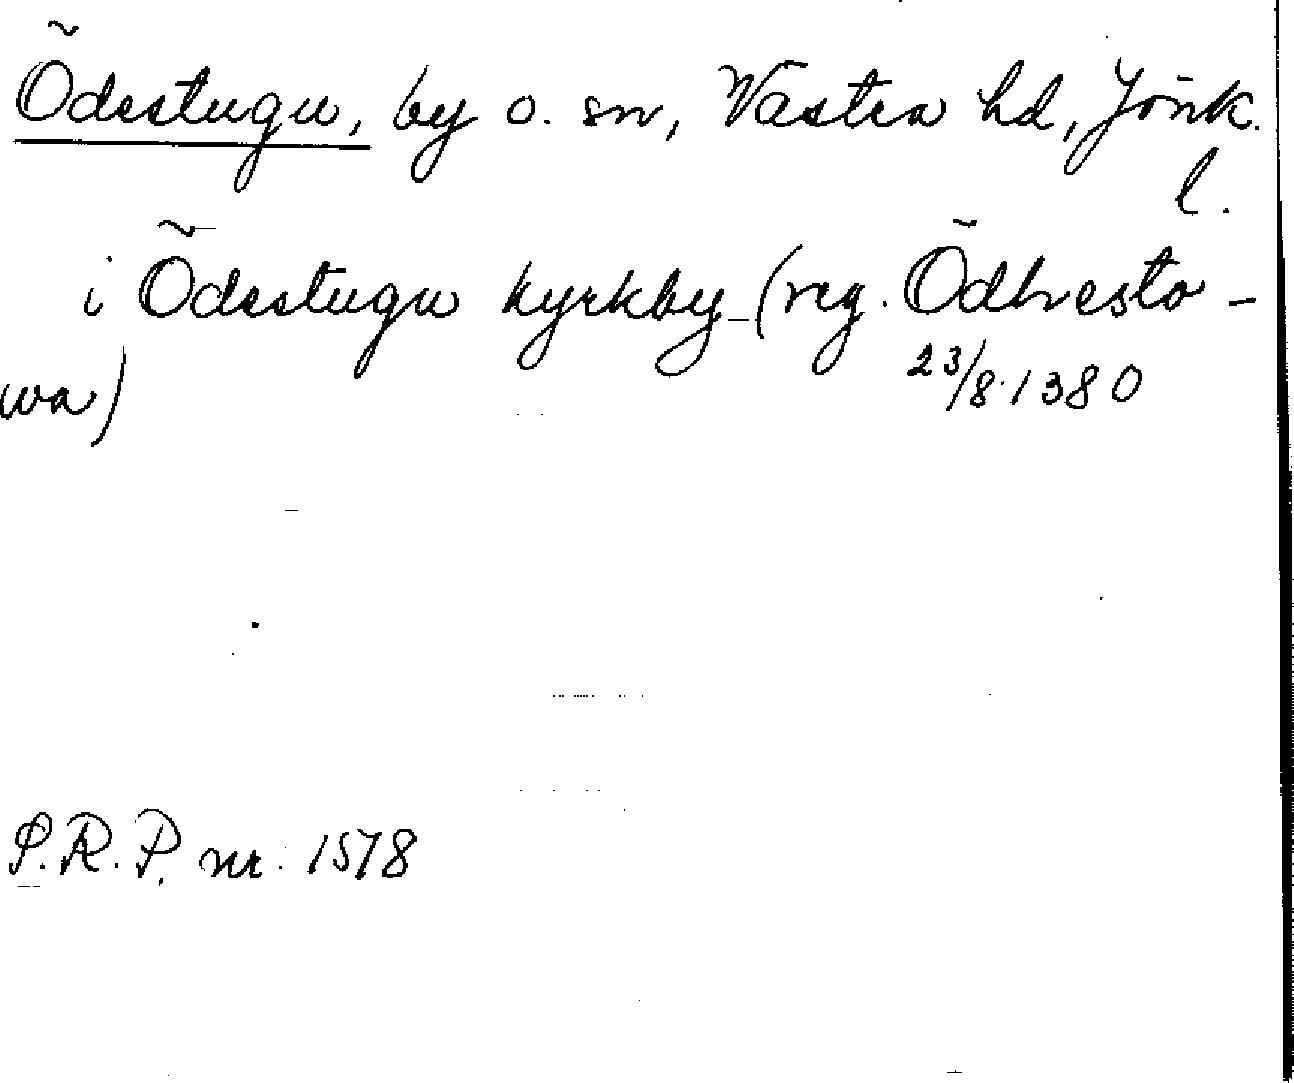 Ödestugu, by o. sn, Västra hd, Jönk.
l.
i Ödestugu kyrkby (reg. Ödhesto-
wa) 23/8 1380
S.R.P. nr. 1578